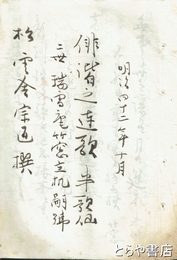 明治四十二年十月
俳諧之連歌 半歌仙
二世 瑞雪庵竹窓立机嗣号
松雲舎宗匠 撰
とらや書店